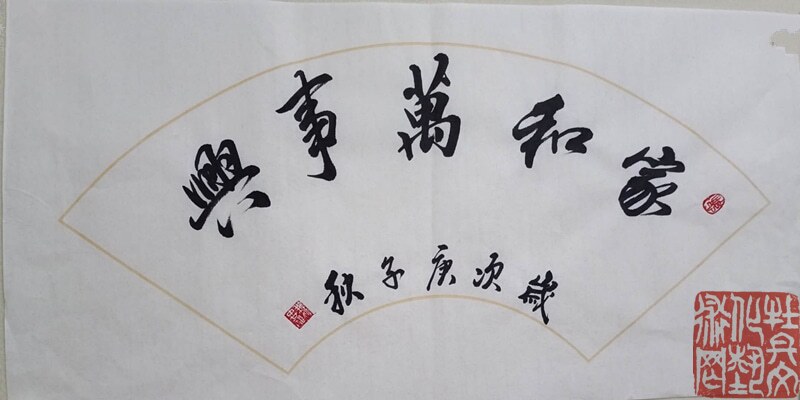 家和萬事興
歲次庚子秋